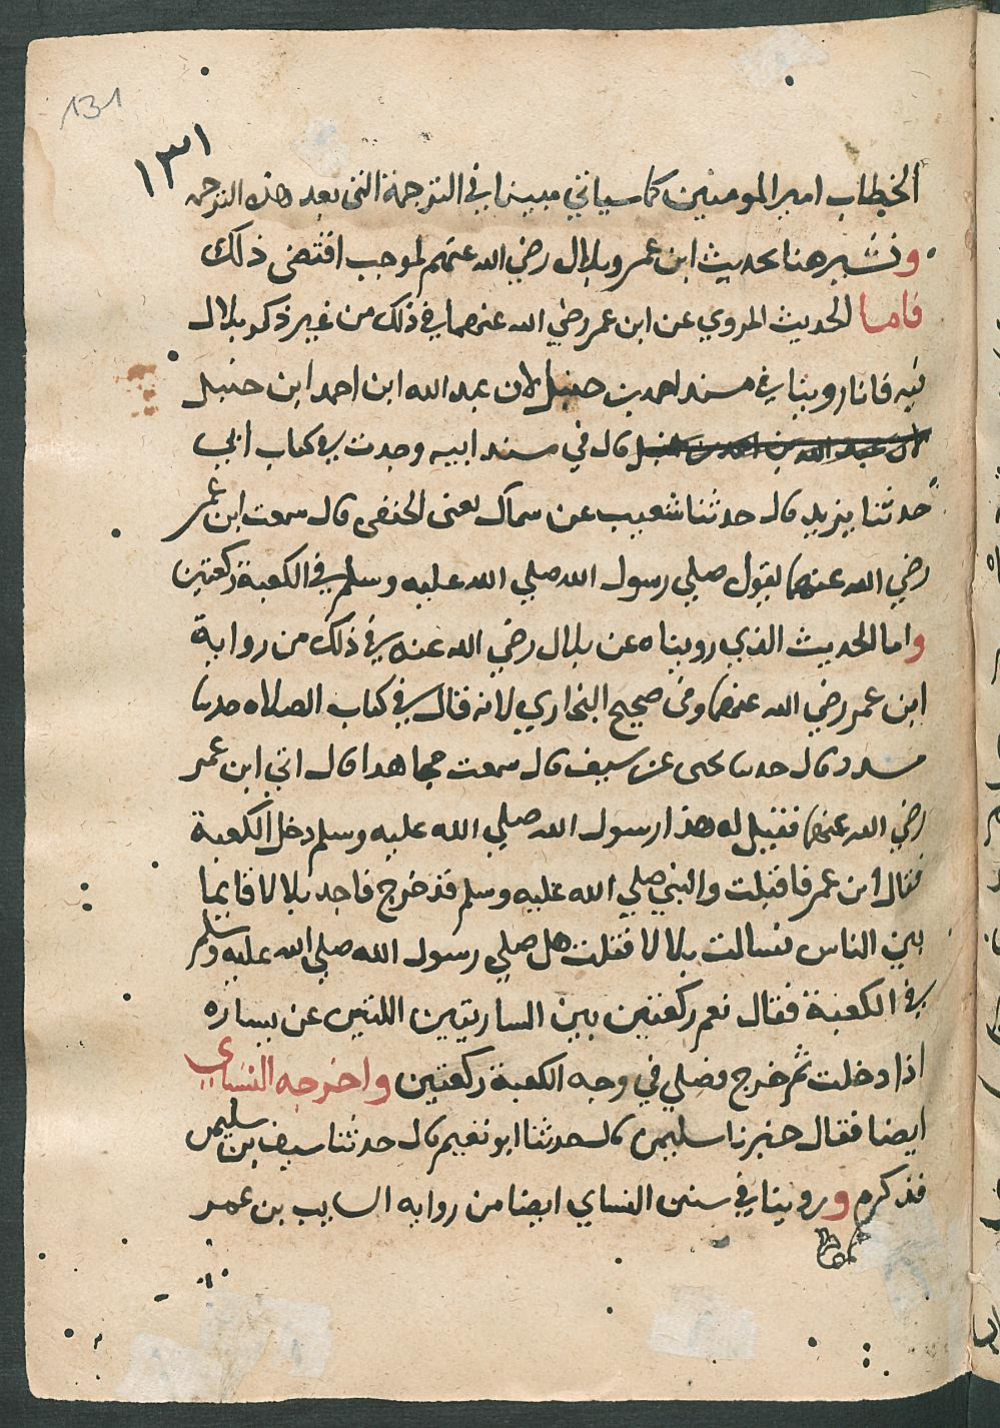 131
١٣١
الخطاب امير المومنين كما سياتي مبينا في الترجمة التي بعد هذه الترجمه
ونشير هنا لحديث ابن عمر وبلال رضي الله عنهم لموجب اقتضى ذلك
فاما الحديث المروي عن ابن عمر رضي الله عنهما في ذلك من غير ذكر بلال
فيه فانا روينا في مسند احمد بن حنبل لان عبد الله ابن احمد ابن حنبل
لان عبد الله بن احمد بن حنبل قال في مسند ابيه وجدت في كتاب ابي
حدثنا يزيد قال حدثنا شعيب عن سماك يعنى الحنفى قال سمعت ابن عمر
رضي الله عنهما يقول صلي رسول الله صلي الله عليه وسلم في الكعبة ركعتين
واما الحديث الذي رويناه عن بلال رضي الله عنه في ذلك من رواية
ابن عمر رضي الله عنهما وفى صحيح البخاري لانه قال في كتاب الصلاه حدثنا
مسدد قال حدثنا يحيى عن سيف قال سمعت مجاهدا قال اتي ابن عمر
رضي الله عنهما فقيل له هذا رسول الله صلي الله عليه وسلم دخل الكعبة
فقال ابن عمر فاقبلت والنبي صلي الله عليه وسلم قد خرج فاجد بلالا قايما
بين الناس فسالت بلالا فقلت هل صلي رسول الله صلي الله عليه وسلم
في الكعبة فقال نعم ركعتين بين الساريتين اللتين عن يساره
اذا دخلت ثم خرج فصلي في وجه الكعبة ركعتين واخرجه النساي
ايضا فقال خبرنا سليمن قال حدثنا ابو نعيم قال حدثنا سيف بن سليمن
فذكره وروينا في سنن النساي ايضا من روايه السايب بن عمر